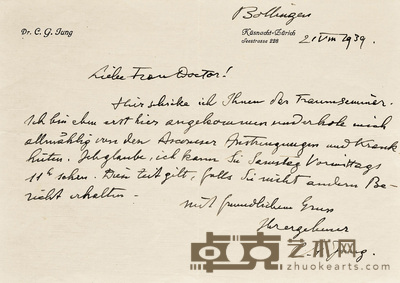 Bollingen
Dr. C. G. Jung
Küsnacht-Zürich
Seestrasse 228
2 VIII 1939.
Liebe Frau Doctor!
Hier schicke ich Ihnen das Traumseminar.
Ich bin eben erst hier angekommen und erhole mich
allmählig von den Asconeser Anstrengungen und Krank
heiten. Ich glaube, ich kann Sie Samstag Vormittags
11h sehen. Diese Zeit gilt, falls Sie nicht andern Be-
richt erhalten.
Mit freundlichem Gruss
Ihr ergebener
Jung.
卓克艺术网
zhuokearts.com